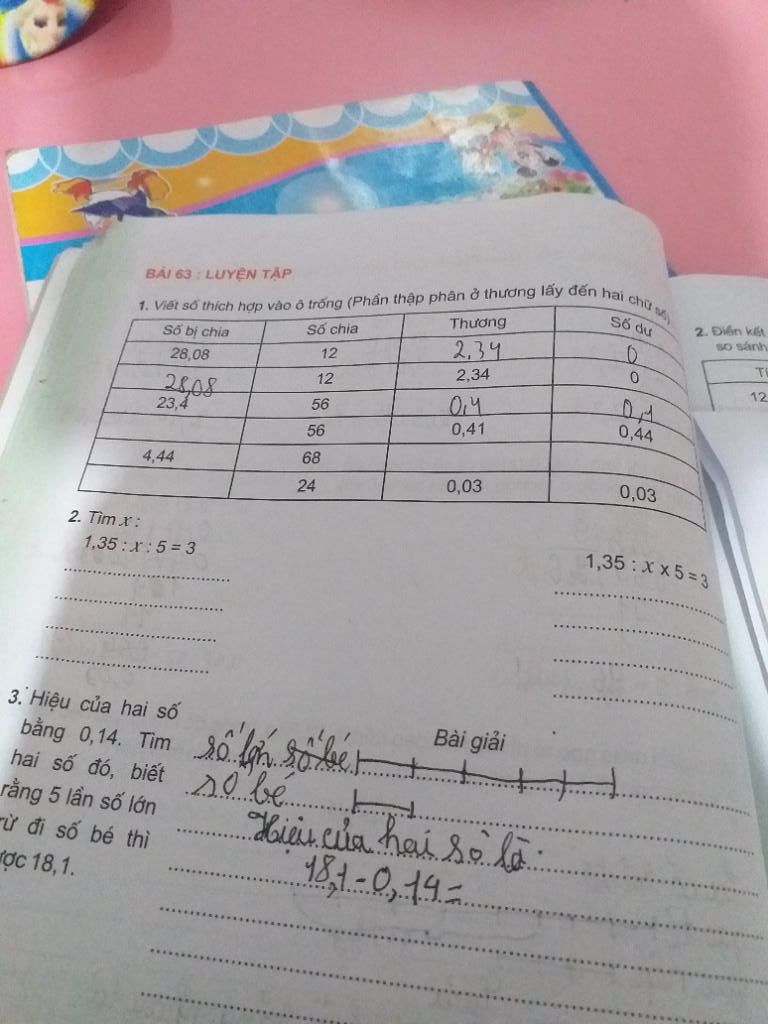 BÀI 63 : LUYỆN TẬP
1. Viết số thích hợp vào ô trống (Phần thập phân ở thương lấy đến hai chữ số)
Số bị chia Số chia Thương Số dư
28,08 12 2,34 0
28,08 12 2,34 0
23,4 56 0,4 0,1
56 0,41 0,44
4,44 68
24 0,03 0,03
2. Tìm x :
1,35 : x : 5 = 3
1,35 : x x 5 = 3
3. Hiệu của hai số
bằng 0,14. Tìm
hai số đó, biết
rằng 5 lần số lớn
trừ đi số bé thì
được 18,1.
Bài giải
số lớn số bé
số bé
Hiệu của hai số là:
18,1 - 0,14 =
2. Điền kết
so sánh
12